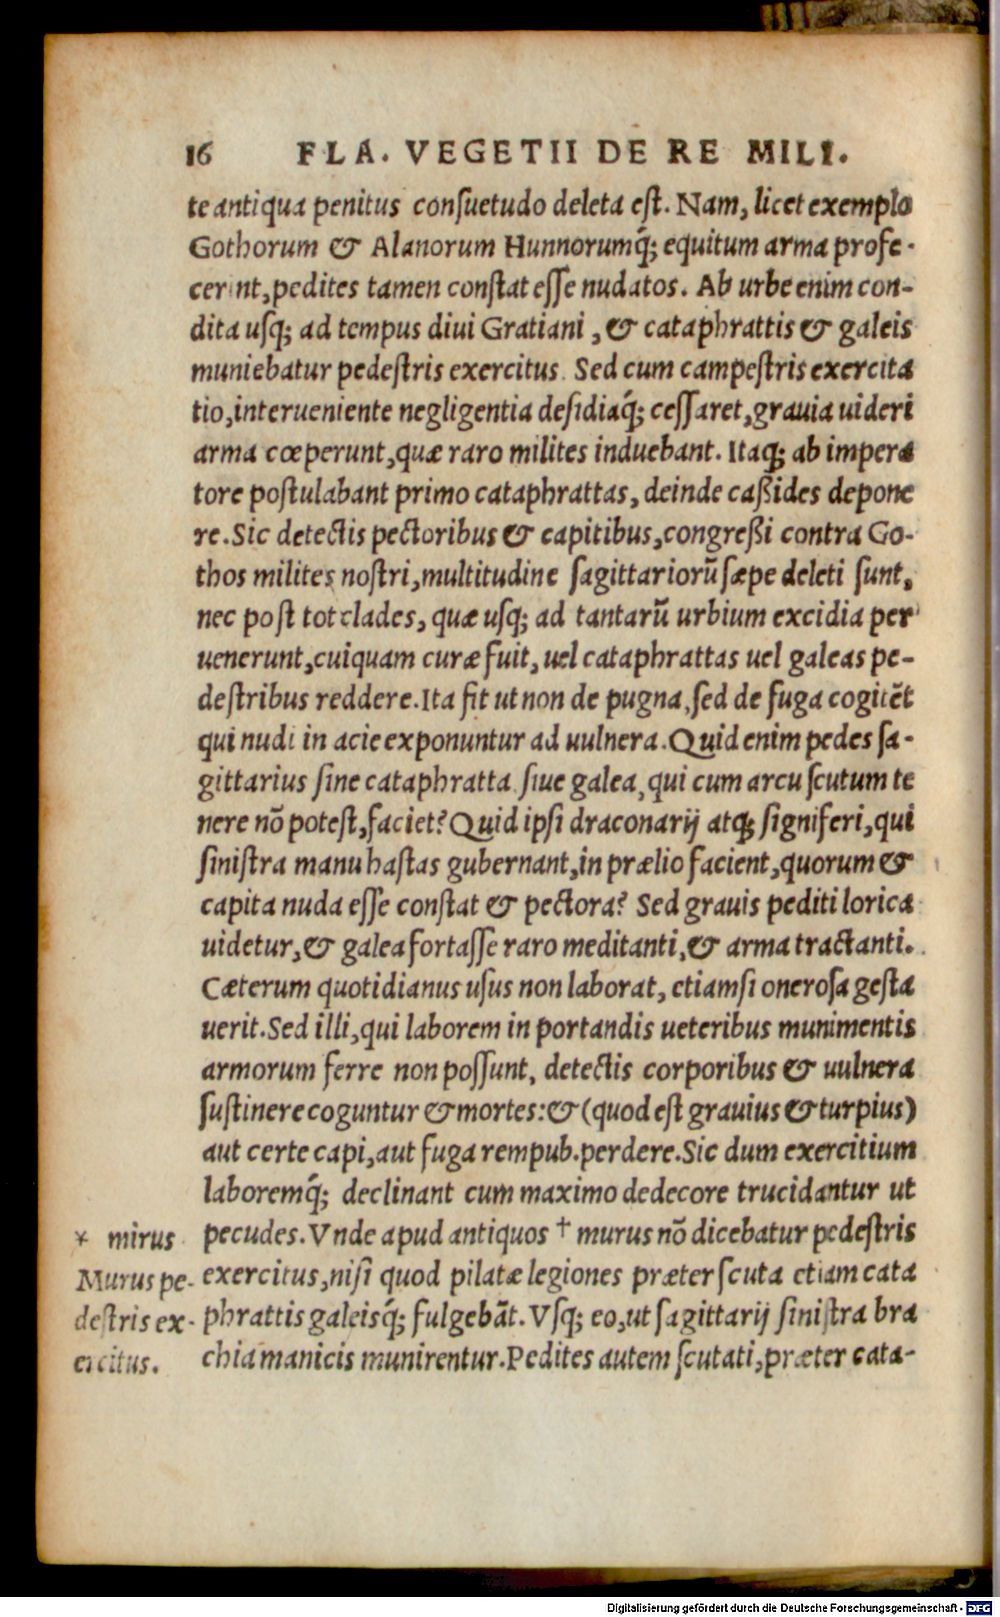 16 FLA. VEGETII DE RE MILI.
te antiqua penitus conſuetudo deleta eſt. Nam, licet exemplo
Gothorum & Alanorum Hunnorumq́; equitum arma profe-
cerint, pedites tamen conſtat eſſe nudatos. Ab urbe enim con-
dita uſq; ad tempus diui Gratiani, & cataphrattis & galeis
muniebatur pedeſtris exercitus. Sed cum campeſtris exercita
tio, interueniente negligentia deſidiaq́; ceſſaret, grauia uideri
arma cœperunt, quæ raro milites induebant. Itaq; ab impera
tore poſtulabant primo cataphrattas, deinde caßides depone
re. Sic detectis pectoribus & capitibus, congreßi contra Go-
thos milites noſtri, multitudine ſagittariorū ſæpe deleti ſunt,
nec poſt tot clades, quæ uſq; ad tantarū urbium excidia per
uenerunt, cuiquam curæ fuit, uel cataphrattas uel galeas pe-
deſtribus reddere. Ita fit ut non de pugna, ſed de fuga cogitēt
qui nudi in acie exponuntur ad uulnera. Quid enim pedes ſa-
gittarius ſine cataphratta, ſiue galea, qui cum arcu ſcutum te
nere nō poteſt, faciet? Quid ipſi draconarij atq; ſigniferi, qui
ſiniſtra manu haſtas gubernant, in prælio facient, quorum &
capita nuda eſſe conſtat & pectora? Sed grauis pediti lorica
uidetur, & galea fortaſſe raro meditanti, & arma tractanti.
Cæterum quotidianus uſus non laborat, etiamſi oneroſa geſta
uerit. Sed illi, qui laborem in portandis ueteribus munimentis
armorum ferre non poſſunt, detectis corporibus & uulnera
ſuſtinere coguntur & mortes: & (quod eſt grauius & turpius)
aut certe capi, aut fuga rempub. perdere. Sic dum exercitium
laboremq́; declinant cum maximo dedecore trucidantur ut
pecudes. Vnde apud antiquos † murus nō dicebatur pedeſtris
exercitus, niſi quod pilatæ legiones præter ſcuta etiam cata
phrattis galeisq́; fulgebāt. Vſq; eo, ut ſagittarij ſiniſtra bra
chia manicis munirentur. Pedites autem ſcutati, præter cata-
* mirus
Murus pe-
deſtris ex-
ercitus.
Digitalisierung gefördert durch die Deutsche Forschungsgemeinschaft - DFG